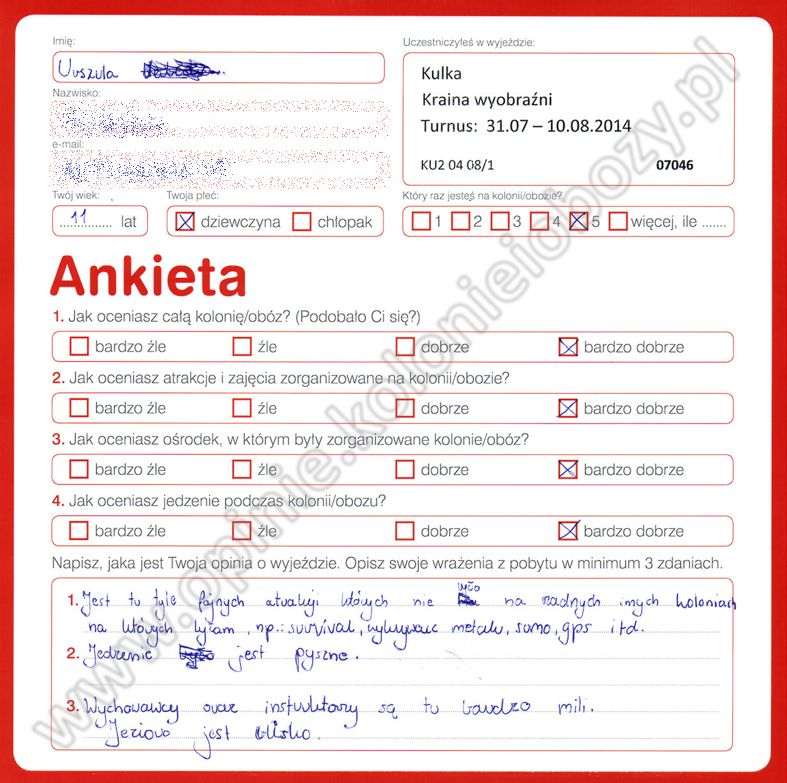 Imię:
Urszula
Uczestniczyłeś w wyjeździe:
Kulka
Kraina wyobraźni
Turnus: 31.07 – 10.08.2014
KU2 04 08/1 07046
Nazwisko:
e-mail:
Twój wiek: Twoja płeć: Który raz jesteś na kolonii/obozie?
11 lat dziewczyna chłopak 1 2 3 4 5 więcej, ile .......
Ankieta
1. Jak oceniasz całą kolonię/obóz? (Podobało Ci się?)
bardzo źle źle dobrze bardzo dobrze
2. Jak oceniasz atrakcje i zajęcia zorganizowane na kolonii/obozie?
bardzo źle źle dobrze bardzo dobrze
3. Jak oceniasz ośrodek, w którym były zorganizowane kolonie/obóz?
bardzo źle źle dobrze bardzo dobrze
4. Jak oceniasz jedzenie podczas kolonii/obozu?
bardzo źle źle dobrze bardzo dobrze
Napisz, jaka jest Twoja opinia o wyjeździe. Opisz swoje wrażenia z pobytu w minimum 3 zdaniach.
1. Jest tu tyle fajnych atrakcji których nie było na żadnych innych koloniach
na których byłam, np.: survival, wykrywacz metalu, sumo, gps itd.
2. Jedzenie jest pyszne.
3. Wychowawcy oraz instruktorzy są tu bardzo mili.
Jezioro jest blisko.
www.opinie.kolonieiobozy.pl